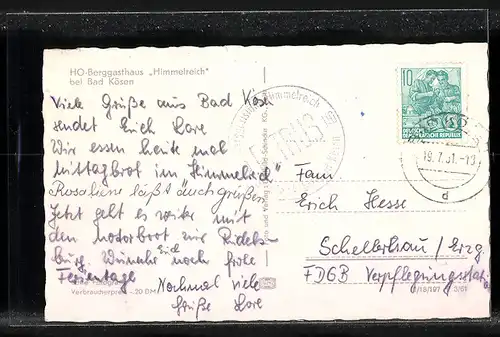 HO-Berggasthaus „Himmelreich"
bei Bad Kösen
Viele Grüße aus Bad Kösen
sendet Euch Lore
Wir essen heute mal
Mittagbrot im „Himmelreich"
Rosaliene läßt auch grüßen
Jetzt geht es weiter mit
den Motorboot zur Rudels-
burg. Wünsche Euch noch frohe
Ferientage
Nochmal viele
Grüße Lore
Verbraucherpreis -.20 DM
Himmelreich
10
DEUTSCHE
DEMOKRATISCHE REPUBLIK
19.7.61.-13
d
Fam
Erich Hesse
Schellerhau / Erzg
FDGB Verpflegungsstation
3/61